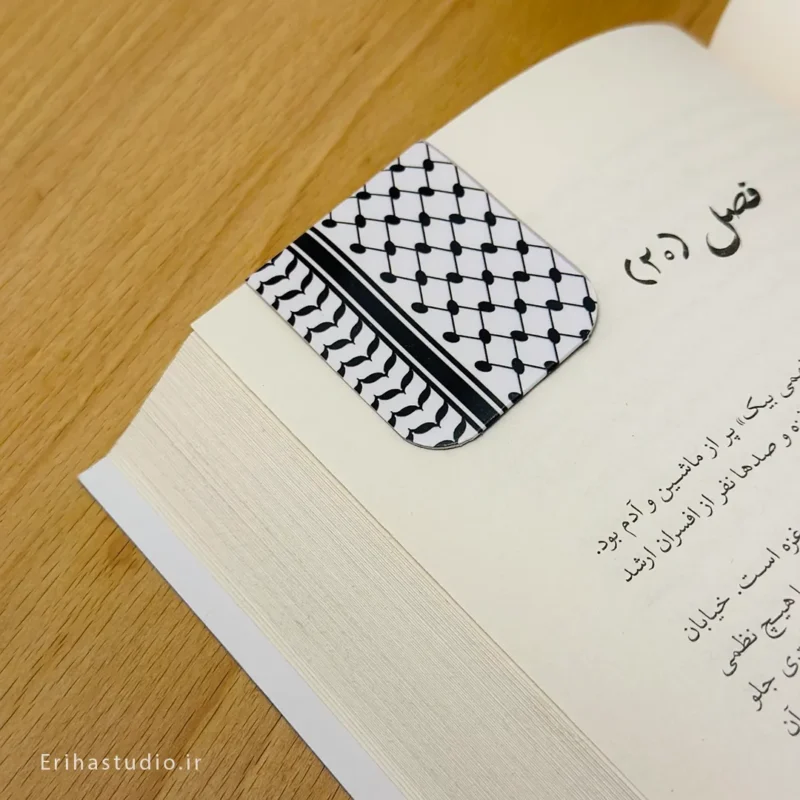 فصل (۲۰)
بیک» پر از ماشین و آدم بود.
و صدها نفر از افسران ارشد
غزه است. خیابان
هیچ نظمی
جلو
آن
Erihastudio.ir